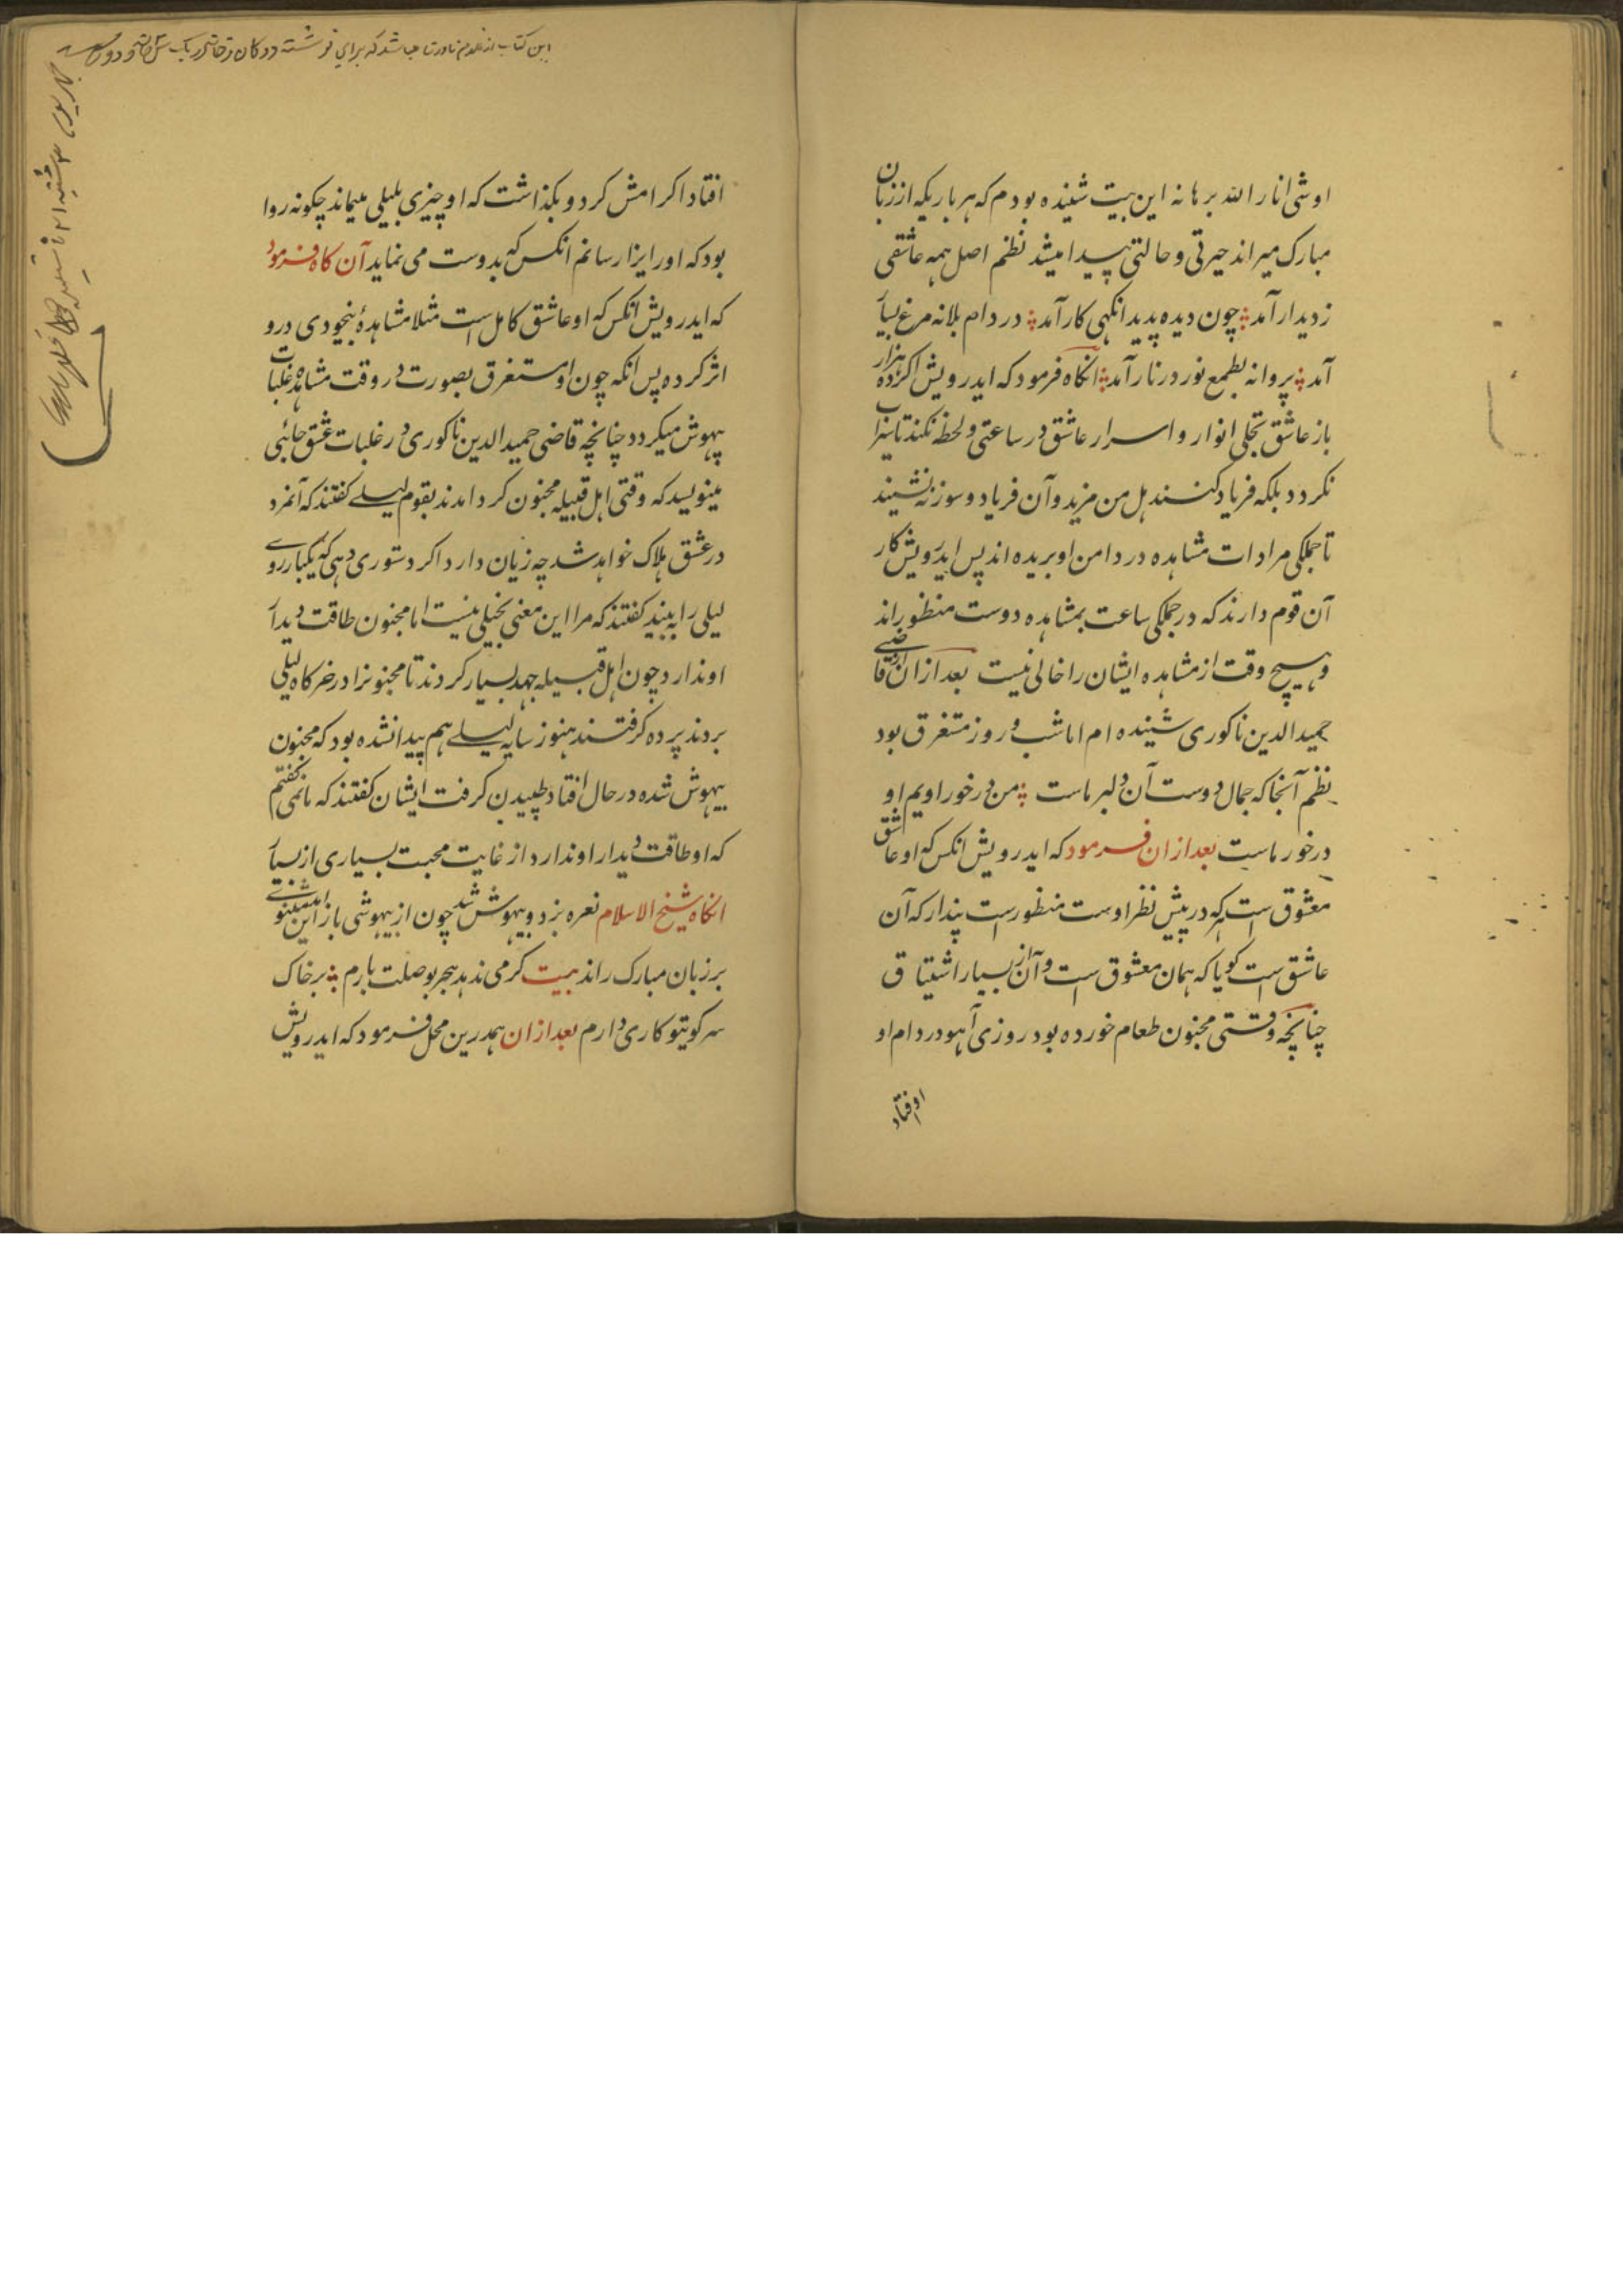 اوشی انار الله برهانه این بیت شنیده بودم که هر باریکه از زبان
مبارک میراند حیرتی و حالتی پیدا میشد نظم اصل همه عاشقی
ز دیدار آمد چون دیده پدید انکهی کار آمد در دام بلا نه مرغ بسیار
آمد پروانه بطمع نور در نار آمد انکاه فرمود که ایدرویش اکر ده هزار
باز عاشق تجلی انوار و اسرار عاشق در ساعتی و لحظه نکند تا سیراب
نکردد بلکه فریاد کنند هل من مزید و آن فریاد و سوز ننشیند
تا جملکی مرادات مشاهده در دامن او بریده اند پس ایدرویش کار
آن قوم دارند که در جملکی ساعت بمشاهده دوست منظور اند
و هیچ وقت از مشاهده ایشان را خالی نیست بعد ازان از قاضی
حمید الدین ناکوری شنیده ام اما شب و روز مستغرق بود
نظم آنجا که جمال دوست آن دلبر ماست من در خور اویم او
درخور ماست بعد ازان فرمود که ایدرویش انکس که او عاشق
معشوق است که در پیش نظر اوست منظور است پندار که آن
عاشق است کویا که همان معشوق است و آن از بسیار اشتیاق
چنانچه وقتی مجنون طعام خورده بود روزی آهو در دام او
او فتاد
افتاد اکرامش کرد و بکذاشت که او چیزی بلیلی میماند چکونه روا
بود که او را یزار سانم انکس که بدوست می نماید آن کاه فرمود
که ایدرویش انکس که او عاشق کامل است مثلا مشاهدهٔ بیخودی درو
اثر کرده پس انکه چون او مستغرق بصورت در وقت مشاهده غلبات
بیهوش میکردد چنانچه قاضی حمید الدین ناکوری در غلبات عشق جائی
مینویسد که وقتی اهل قبیله مجنون کرد امدند بقوم لیلی کفتند که آنمرد
در عشق هلاک خواهد شد چه زیان دارد اکر دستوری دهی که یکبار روی
لیلی را به بیند کفتند که مرا این معنی بخیلی نیست اما مجنون طاقت دیدار
او ندارد چون اهل قبیله جهد بسیار کردند تا مجنونرا در خرکاه لیلی
بردند پرده کرفتند هنوز سایه لیلی هم پیدا نشده بود که مجنون
بیهوش شده در حال افتاد طپیدن کرفت ایشان کفتند که ما نمی کفتیم
که او طاقت دیدار او ندارد از غایت محبت بسیاری از بسیار
انکاه شیخ الاسلام نعره بزد و بیهوش شد چون از بیهوشی باز این مثنوی
بر زبان مبارک راند بیت کر می ندهد هجر بوصلت یارم بر خاک
سر کویتو کاری دارم بعد ازان همدرین محل فرمود که ایدرویش
این کتاب از